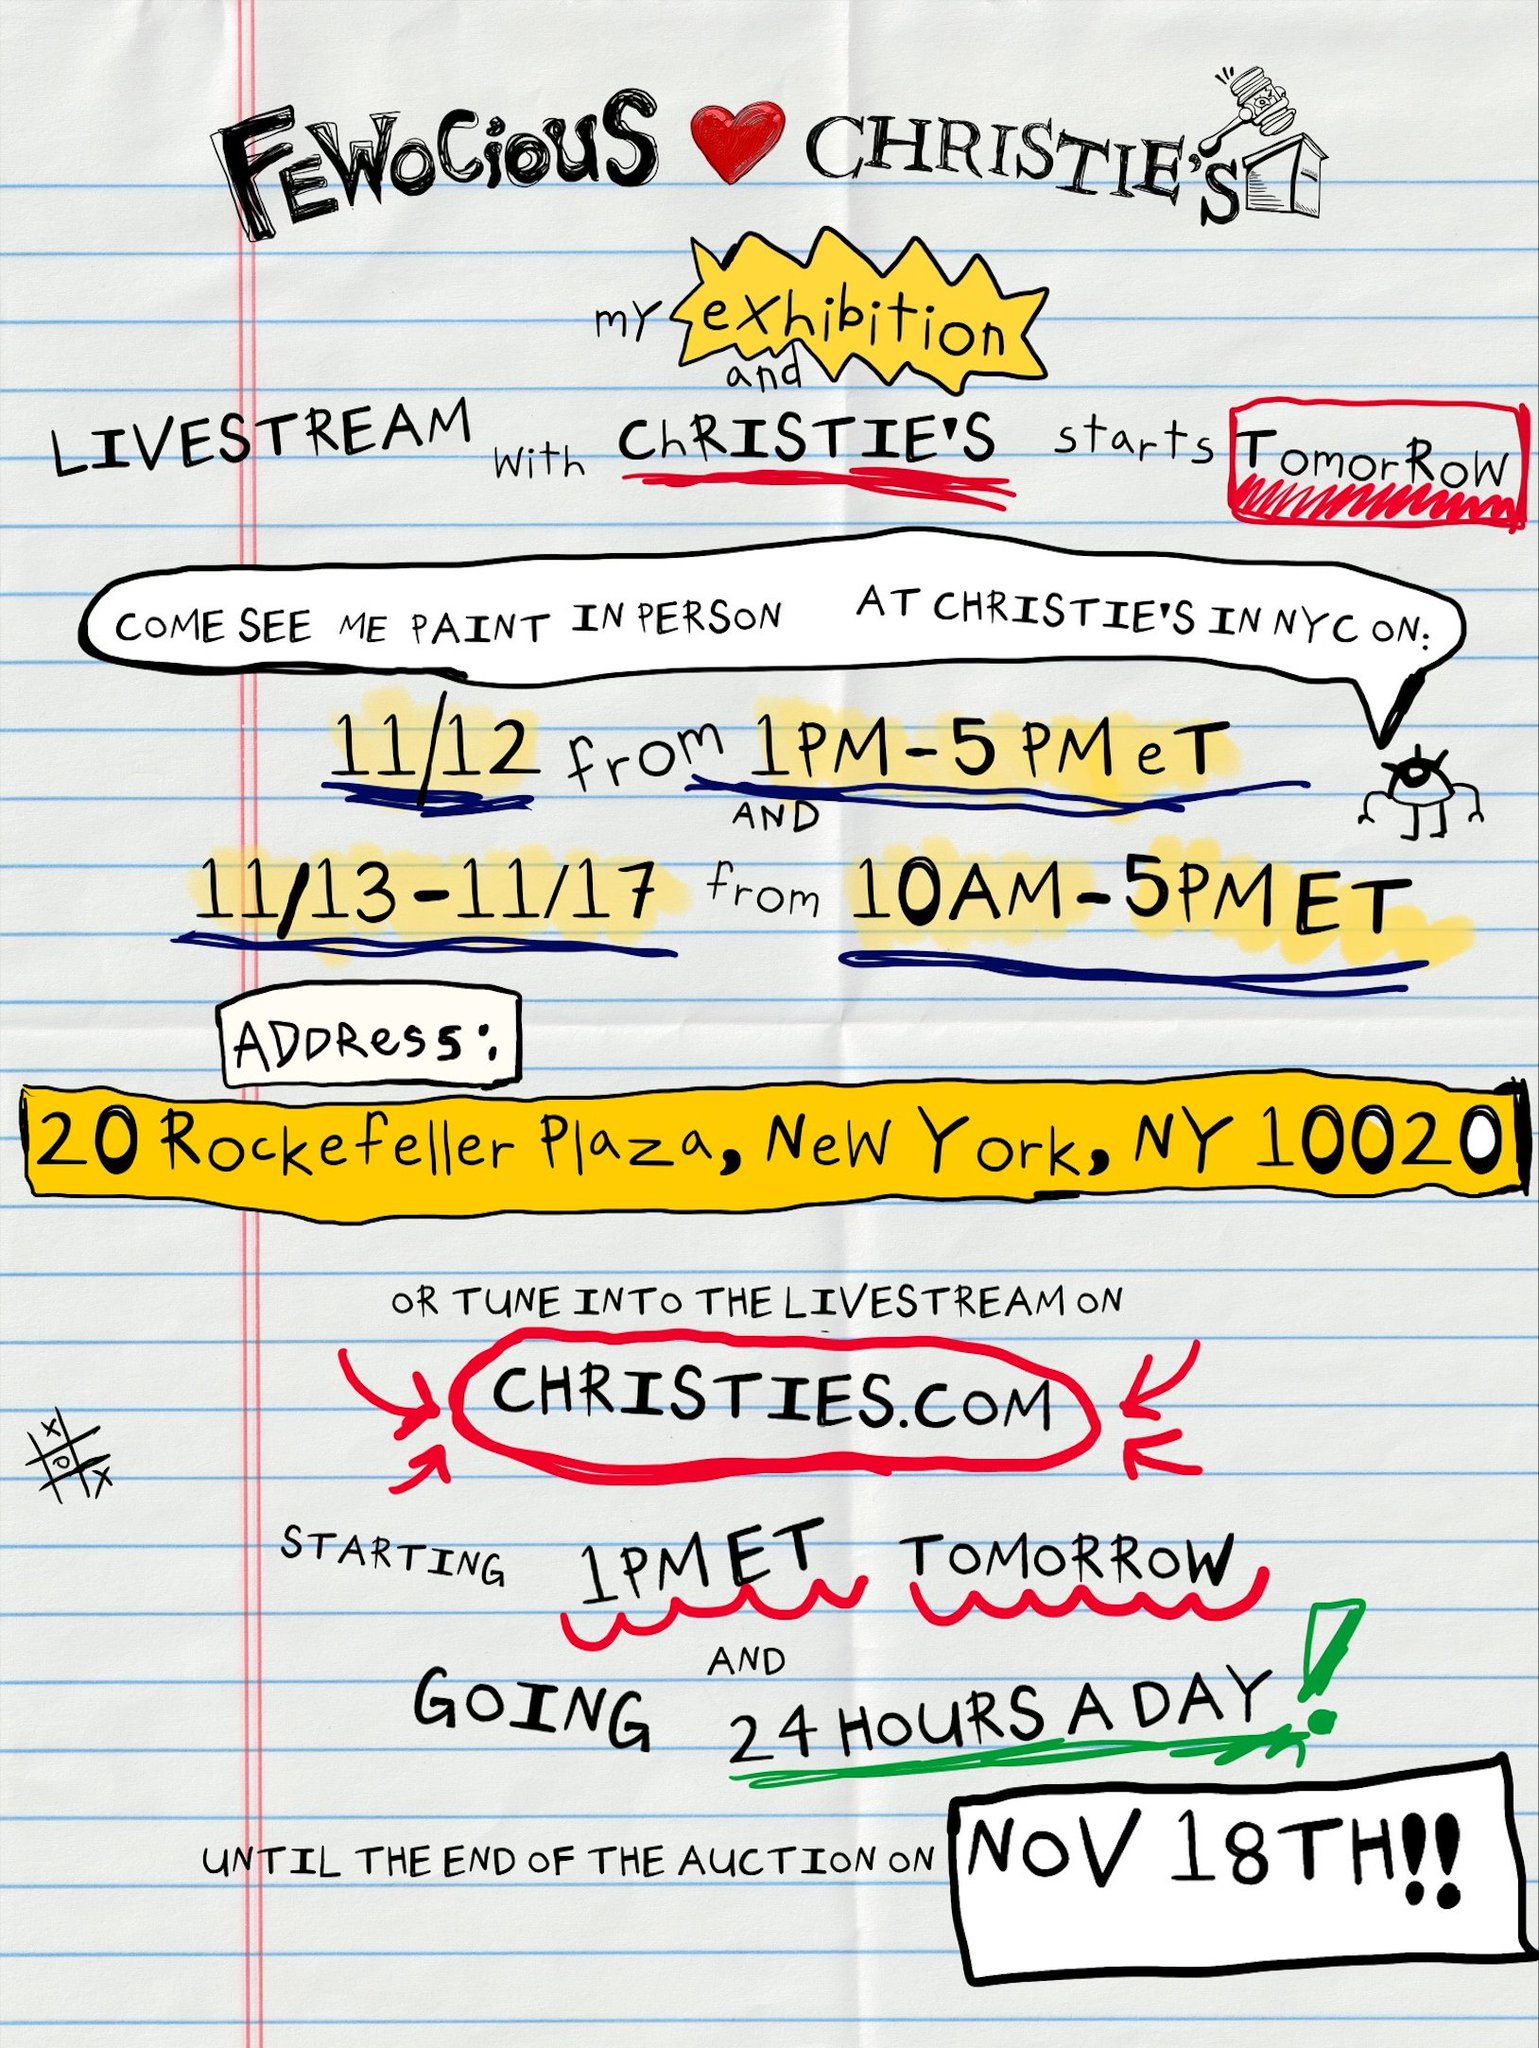 FEWOCiOUS CHRISTIE'S
my exhibition
and
LIVESTREAM with ChRISTIE'S starts TomorRoW
COME SEE ME PAINT IN PERSON AT CHRISTIE'S IN NYC ON:
11/12 from 1PM-5PM eT
AND
11/13-11/17 from 10AM-5PM ET
ADDRess:
20 Rockefeller Plaza, NeW York, NY 10020
OR TUNE INTO THE LIVESTREAM ON
CHRISTIES.COM
X
O
X
STARTING 1PM ET TOMORROW
AND
GOING 24 HOURS A DAY!
UNTIL THE END OF THE AUCTION ON NOV 18TH!!